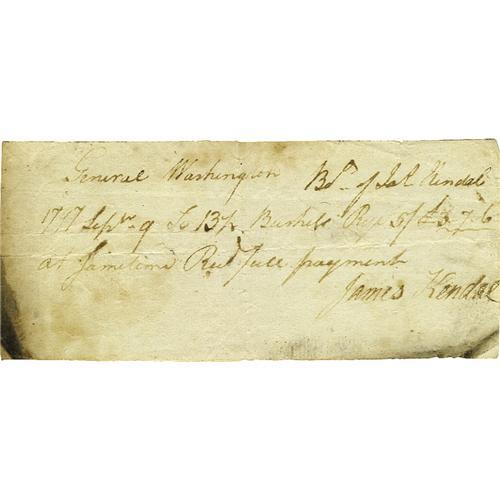 General Washington Bot. of Jas Kendal
1797 Sepbr. 9 To 13½ Bushels Rye 5/ £3.7.6
at sametime Recd full payment
James Kendal